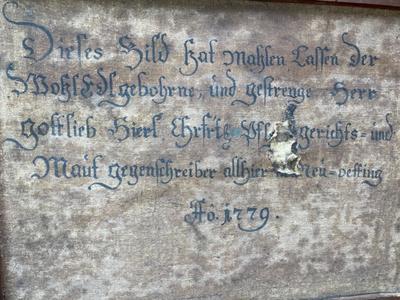 Dieses Bild hat Mahlen Lassen der
WohlEdlgebohrne, und gestrenge Herr
gottlieb Hierl Chrfrtl. gerichts= und
Maut gegenschreiber allhier Neu=oetting
Ao. 1779.